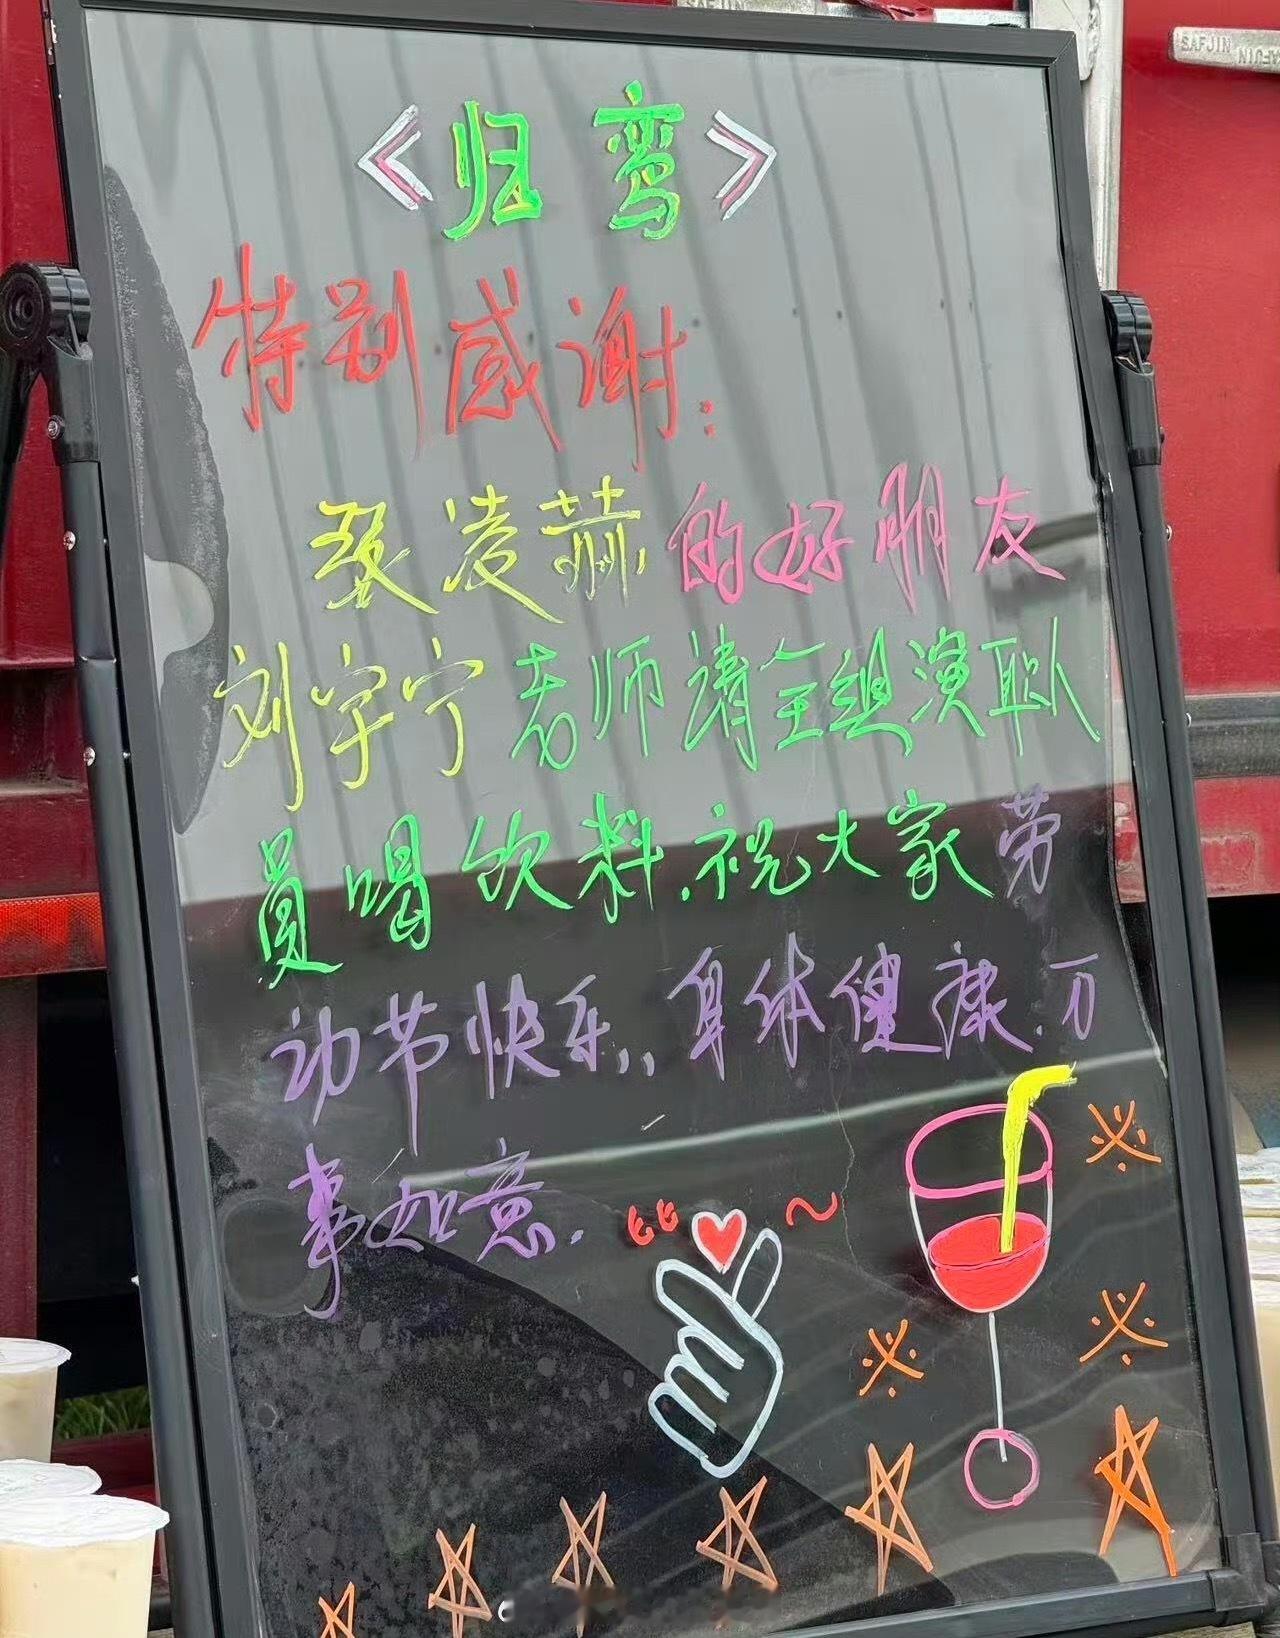 《归鸾》
特别感谢:
张凌赫的好朋友
刘宇宁老师请全组演职
员喝饮料.祝大家劳
动节快乐,,身体健康.万
事如意.
SAFJIN